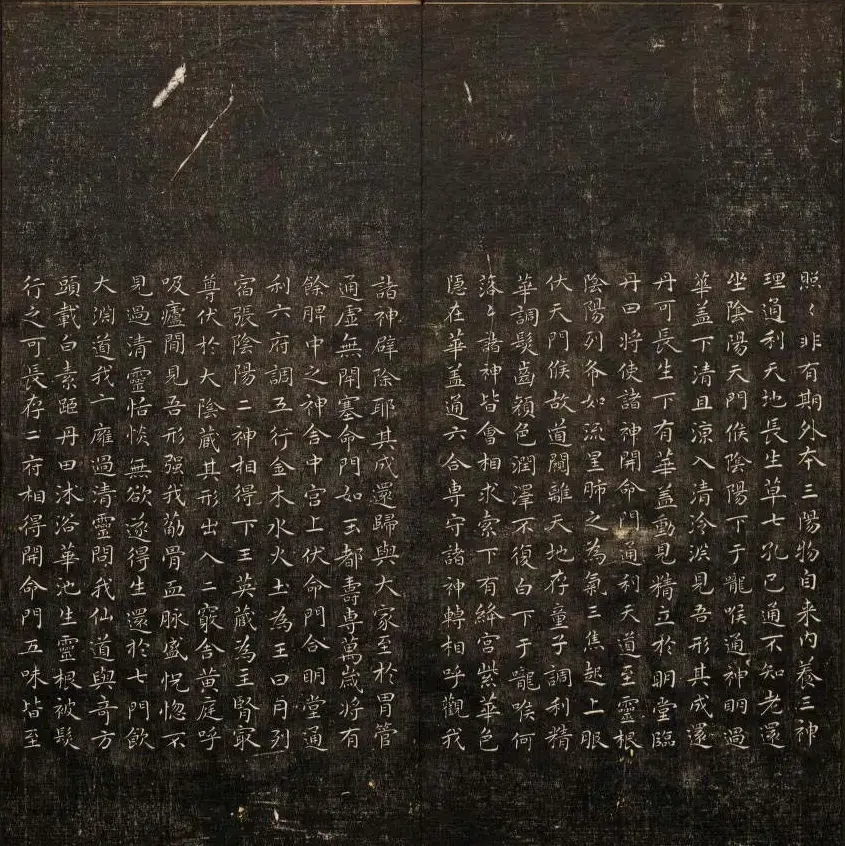 照〻非有期外本三陽物自来内養三神
理通利天地長生草七孔已通不知老還
坐陰陽天門候陰陽下于嚨喉通神明過
華蓋下清且涼入清泠淵見吾形其成還
丹可長生下有華蓋動見精立於明堂臨
丹田將使諸神開命門通利天道至靈根
陰陽列布如流星肺之為氣三焦起上服
伏天門候故道闚離天地存童子調利精
華調髮齒顏色潤澤不復白下于嚨喉何
落〻諸神皆會相求索下有絳宮紫華色
隱在華蓋通六合専守諸神轉相呼觀我
諸神辟除耶其成還歸與大家至於胃管
通虛無閉塞命門如玉都壽専萬歲將有
餘脾中之神舍中宮上伏命門合明堂通
利六府調五行金木水火土為王日月列
宿張陰陽二神相得下玉英藏為主腎冣
尊伏於大陰藏其形出入二竅舍黃庭呼
吸廬間見吾形强我筋骨血脉盛恍惚不
見過清靈恬惔無欲遂得生還於七門飲
大淵道我亠廱過清靈問我仙道與竒方
頭載白素距丹田沐浴華池生靈根被髮
行之可長存二府相得開命門五味皆至